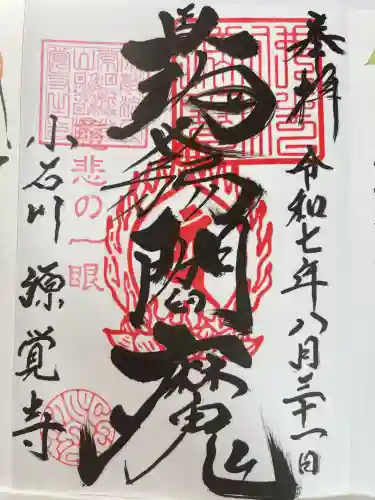 奉拝
令和七年八月二十一日
蒟蒻閻魔
慈悲の一眼
小石川 源覚寺